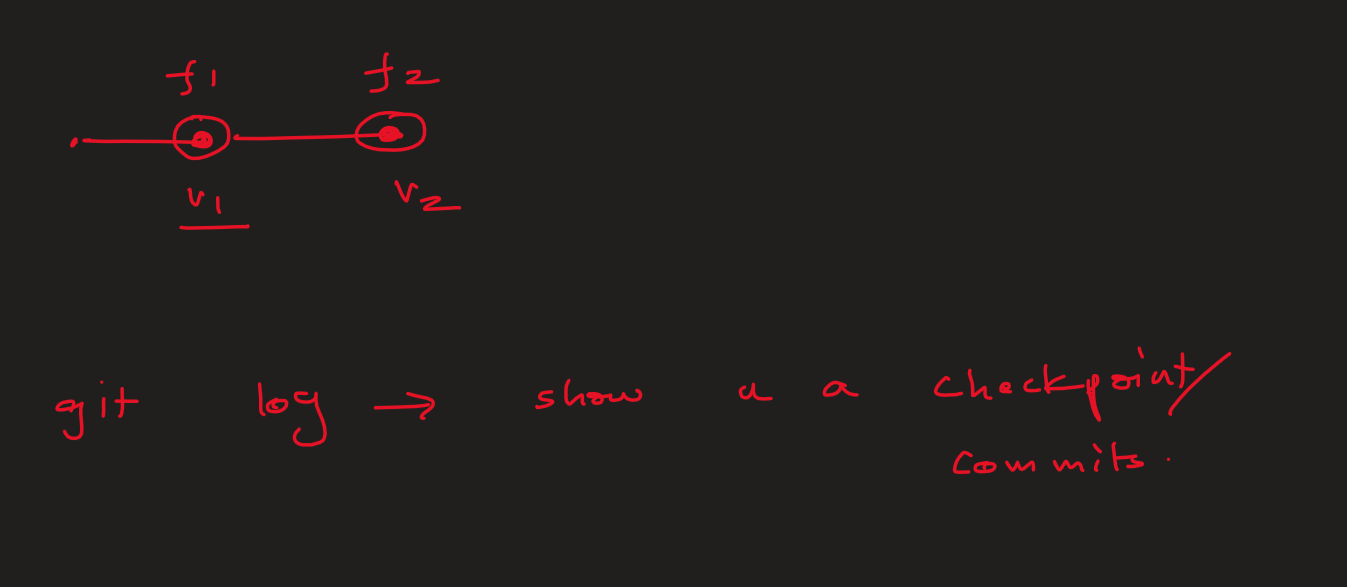 f1 f2
v1 v2
git log → show u a checkpoint/
commits.